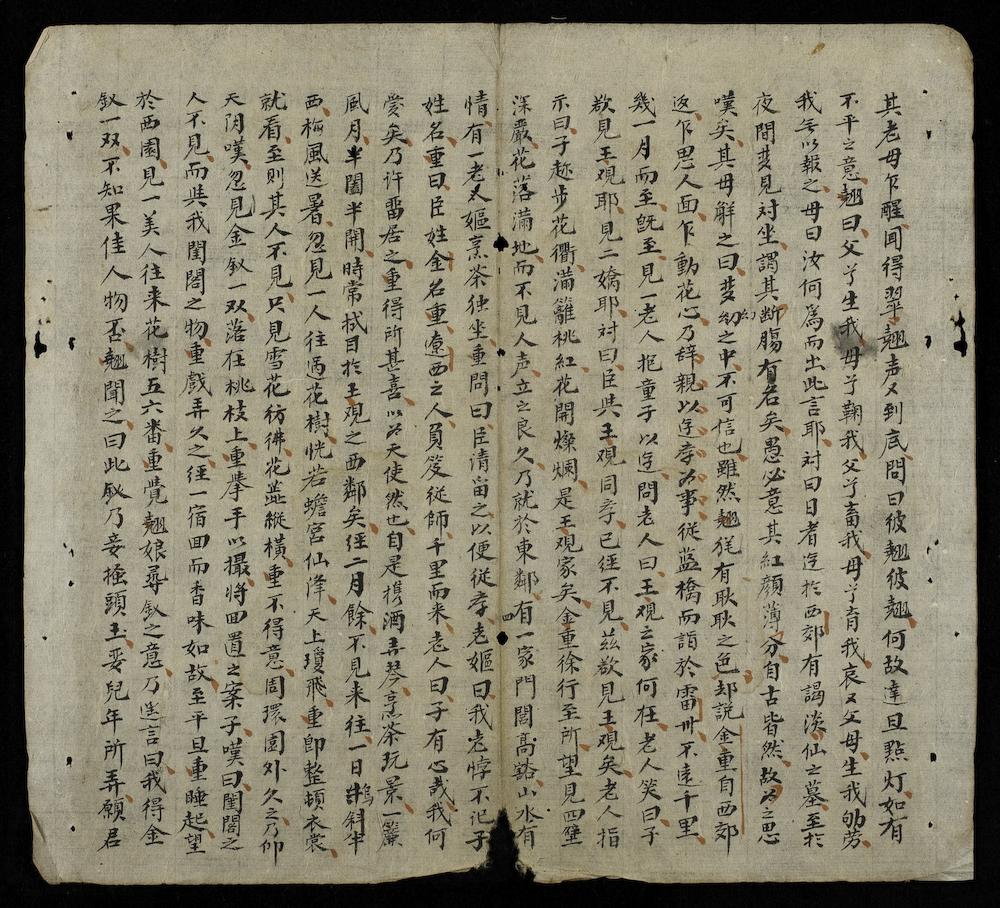 其老母乍醒聞得翠翹声又到底問曰彼翹彼翹何故達旦點灯如有
不平之意翹曰父兮生我母兮鞠我父兮畜我母兮育我哀又父母生我劬劳
我無以報之母曰汝何為而出此言耶对曰日者迄於西郊有謁淡仙之墓至於
夜間夢見对坐謂其断腸有名矣愚必意其紅顔薄分自古皆然故以之思
嘆矣其母解之曰夢幻之中不可信也雖然翹犹有耿耿之色却説金重自西郊
返乍思人面乍動花心乃辞親以迄孝為事從蓝橋而詣於雷州不遠千里
幾一月而至既至見一老人抱童子以迄問老人曰王观之家何在老人笑曰子
欲見王观耶見二嬌耶对曰臣與王观同孝已経不見茲欲見王观矣老人指
示曰子趂步花衢滿籬桃紅花開燦爛是王观家矣金重徐行至所望見四壁
深嚴花落滿地而不見人声立之良久乃就於東鄰有一家門閭高谿山水有
情有一老嫗烹茶独坐重問曰臣清留之以便從孝老嫗曰我老悖不记子
姓名重曰臣姓金名重遼西之人負笈從師千里而来老人曰子有心哉我何
愛矣乃许留居之重得所甚喜以為天使然也自是携酒弄琴烹茶玩景一簾
風月半闔半開時常拭目於王观之西鄰矣経二月餘不見来往一日烏斜半
西梅風送暑忽見一人往過花樹恍若蟾宮仙降天上瓊飛重即整頓衣裳
就看至則其人不見只見雪花彷彿花蕊縱橫重不得意周環園外久之乃仰
天附嘆忽見金釵一双落在桃枝上重挙手以撮將回置之案子嘆曰閨閣之
人不見而與我閨閣之物重戲弄久之経一宿回而香味如故至平旦重睡起望
於西園見一美人往来花樹五六番重覺翹娘尋釵之意乃迭言曰我得金
釵一双不知果佳人物否翹聞之曰此釵乃妾搔頭玉妾兒年所弄願君